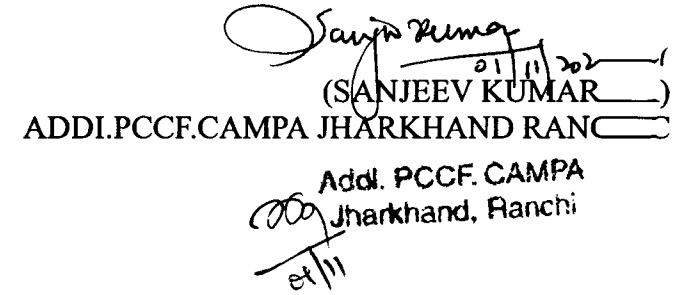 Sanjeev Kumar
01/11/202
(SANJEEV KUMAR )
ADDI.PCCF.CAMPA JHARKHAND RANC
Addl. PCCF. CAMPA
Jharkhand, Ranchi
01/11